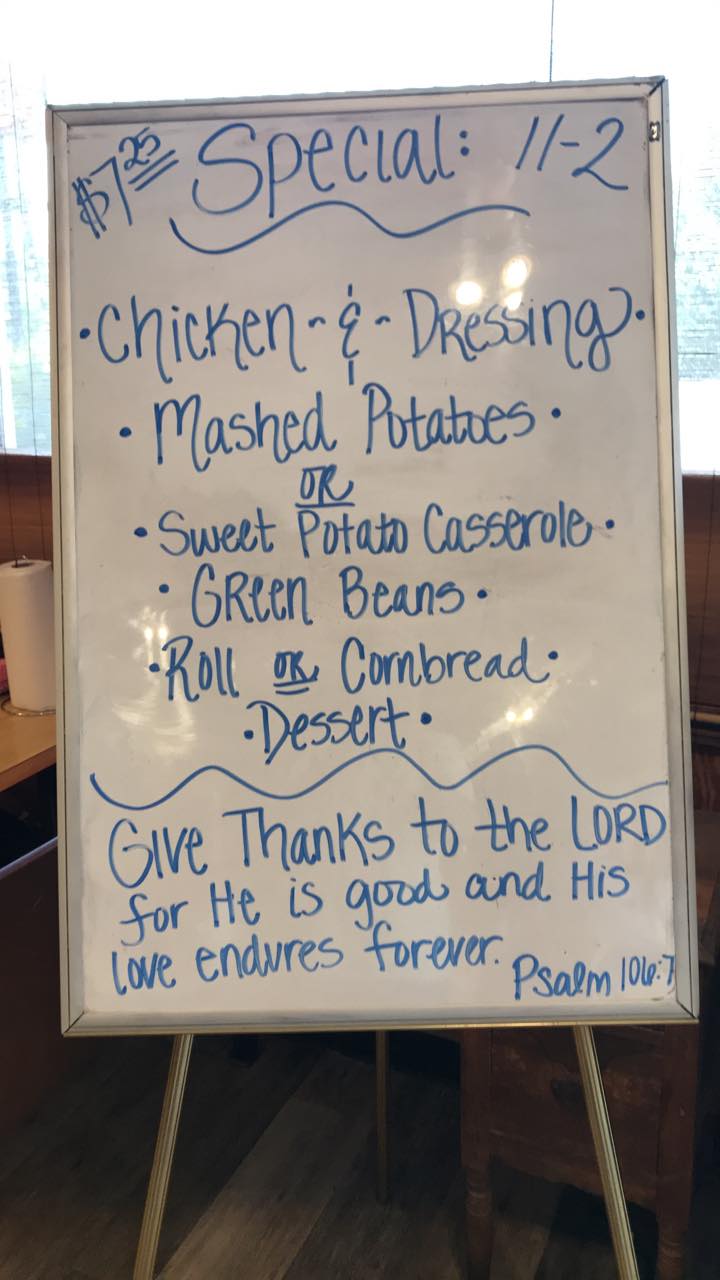 $7.25 Special: 11-2
·Chicken-&-Dressing·
·Mashed Potatoes·
OR
·Sweet Potato Casserole·
·Green Beans·
·Roll OR Cornbread·
·Dessert·
Give Thanks to the LORD
for He is good and His
love endures forever.
Psalm 106:7